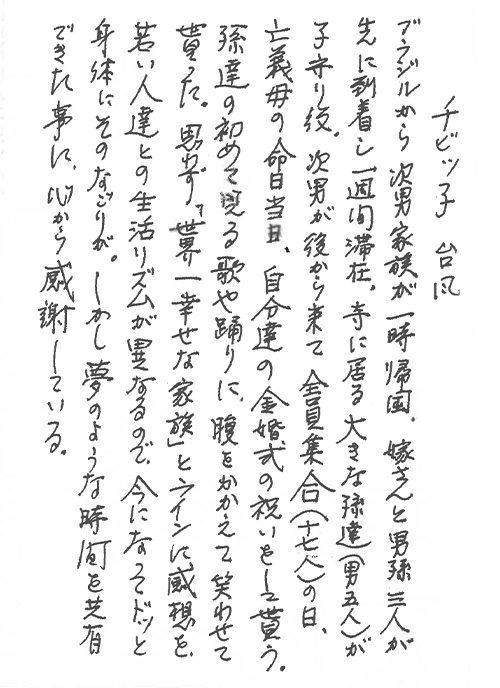 チビッ子 台風
ブラジルから次男家族が一時帰国。嫁さんと男孫三人が
先に到着し一週間滞在。寺に居る大きな孫達(男五人)が
子守り役。次男が後から来て全員集合(十七人)の日、
亡義母の命日当日、自分達の金婚式の祝いをして貰う。
孫達の初めて見る歌や踊りに、腹をかかえて笑わせて
貰った。思わず「世界一幸せな家族」とラインに感想を。
若い人達との生活リズムが異なるので、今になってドッと
身体にそのなごりが。しかし夢のような時間を共有
できた事に、心から感謝している。